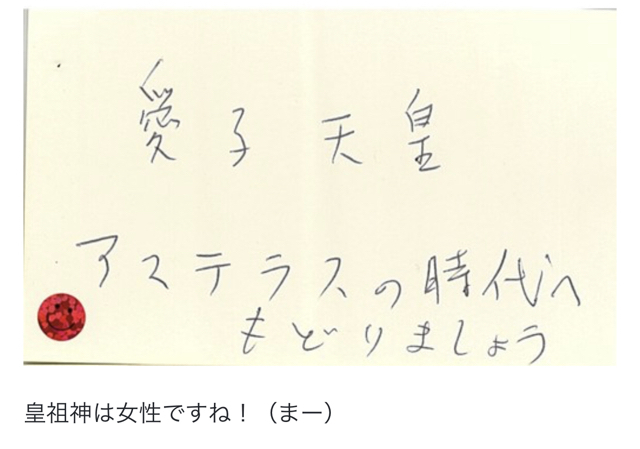 愛子天皇
アステラスの時代へ
もどりましょう
皇祖神は女性ですね！（まー）